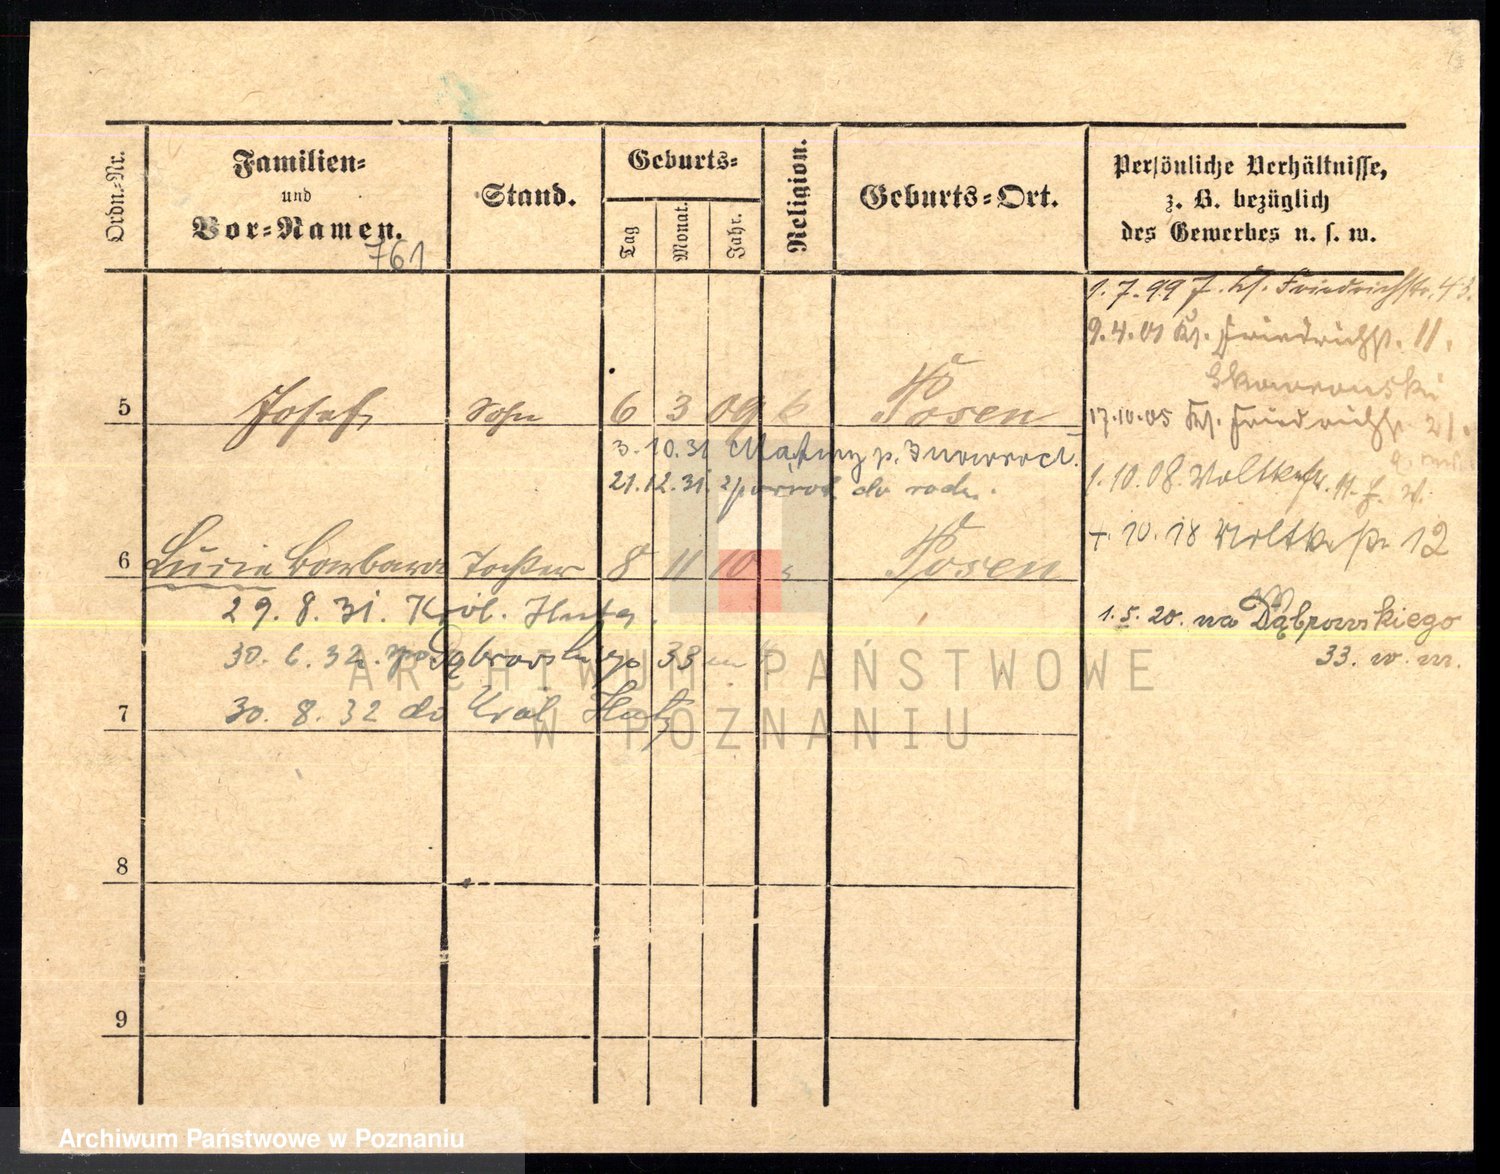 Ordn.-Nr.
Familien-
und
Vor-Namen.
761
Stand.
Geburts-
Tag
Monat.
Jahr.
Religion.
Geburts-Ort.
Persönliche Verhältnisse,
z. B. bezüglich
des Gewerbes u. s. w.
1.7.99 Friedrichstr. 43.
9.4.01 Friedrichstr. 11.
Skowronski
5 Josef Sohn 6 3 09 k Posen
17.10.05 Friedrichstr. 21.
3.10.31 Mątwy p. Inowrocł.
21.12.31. zpowrot do rodz.
1.10.08. Moltkestr.
6 Lucie Barbara Tochter 8 11 10 Posen
10.18 Moltkestr 12
29.8.31. Król. Huta.
1.5.20. na Dąbrowskiego
33. w. m.
30.6.32. Dąbrowskiego 33 m
7
30.8.32 do Król Huty
8
9
ARCHIWUM PAŃSTWOWE
W POZNANIU
Archiwum Państwowe w Poznaniu